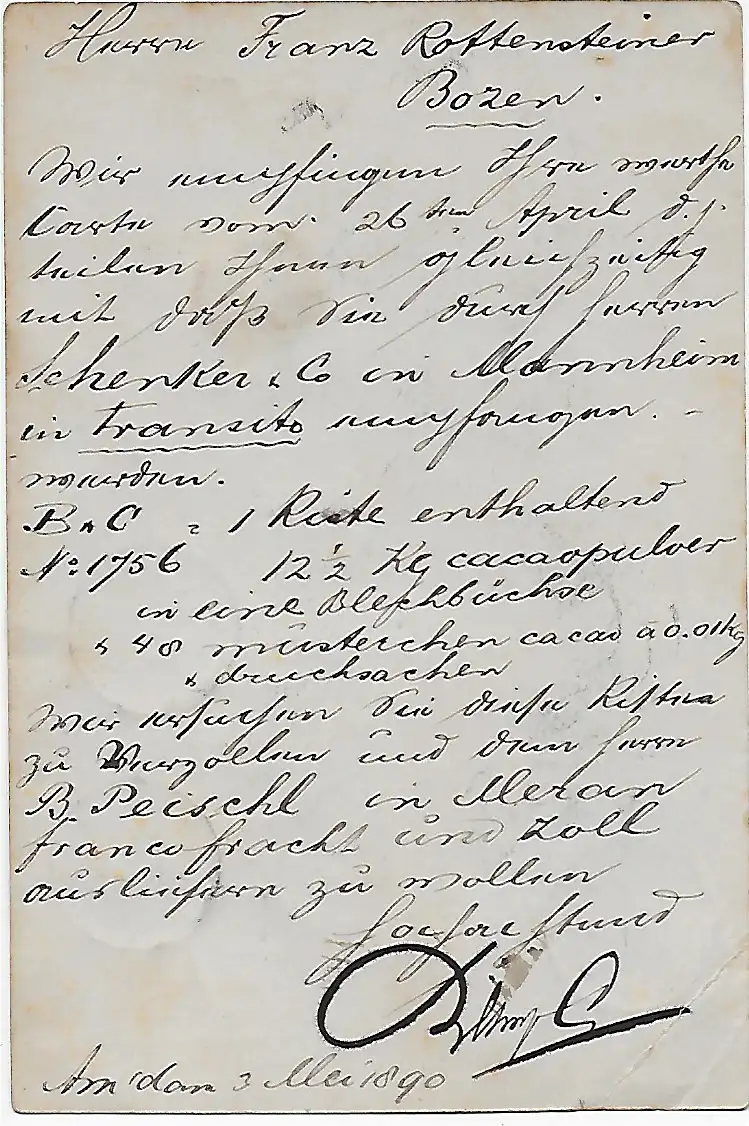 Herrn Franz Rottensteiner
Bozen.
Wir empfingen Ihre werthe
Carte vom 26ten April d.j.
teilen Ihnen gleichzeitig
mit daß Sie durch Herren
Schenker & Co in Mannheim
in transito empfangen
werden.
B & C = 1 Kiste enthaltend
No. 1756 12 1/2 Kg cacaopulver
in eine Blechbüchse
" 48 müsterchen cacao a 0.01kg
" drucksachen
Wir ersuchen Sie diese Kiste
zu Verzollen und dem Herrn
B. Peischl in Meran
franco fracht und Zoll
ausliefern zu wollen
Hochachtend
Am'dam 3 Mei 1890